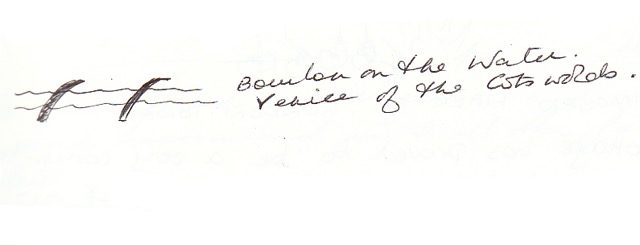 Bourton on the Water.
Venice of the Cotswolds.